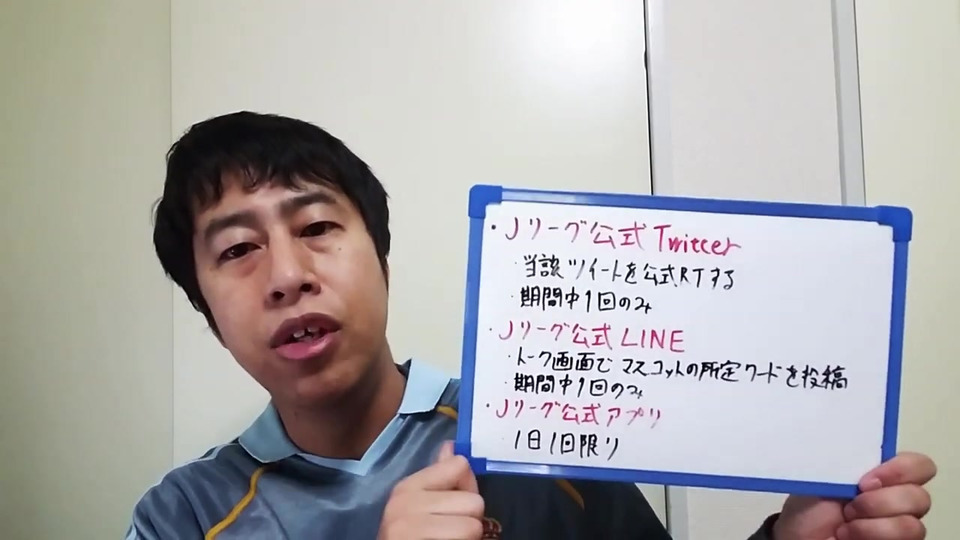 ・Jリーグ公式Twitter
・当該ツイートを公式RTする
・期間中1回のみ
・Jリーグ公式LINE
・トーク画面でマスコットの所定ワードを投稿
・期間中1回のみ
・Jリーグ公式アプリ
・1日1回限り